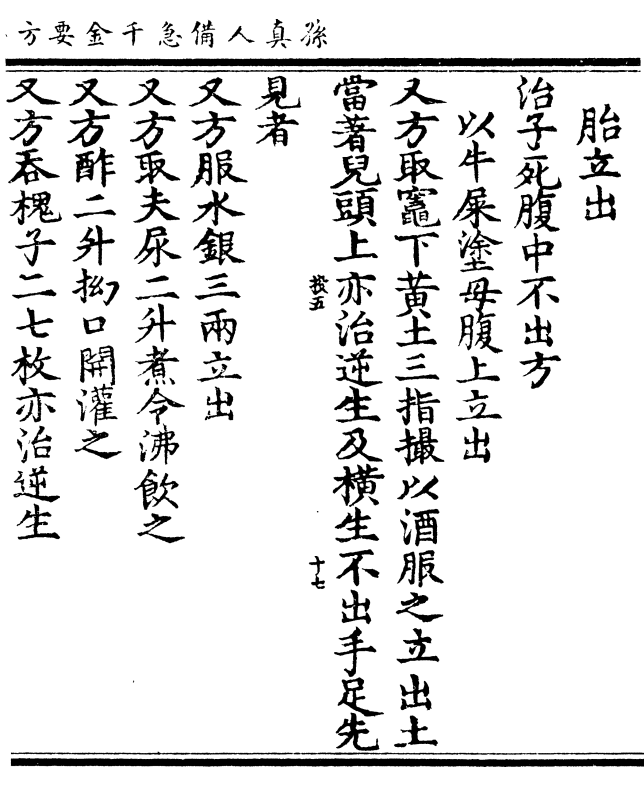 孫真人備急千金要方
胎立出
治子死腹中不出方
以牛屎塗母腹上立出
又方取竈下黃土三指撮以酒服之立出土
當著兒頭上亦治逆生及横生不出手足先
見者
又方服水銀三兩立出
又方取夫尿二升煮令沸飲之
又方酢二升拗口開灌之
又方吞槐子二七枚亦治逆生
投五
十七